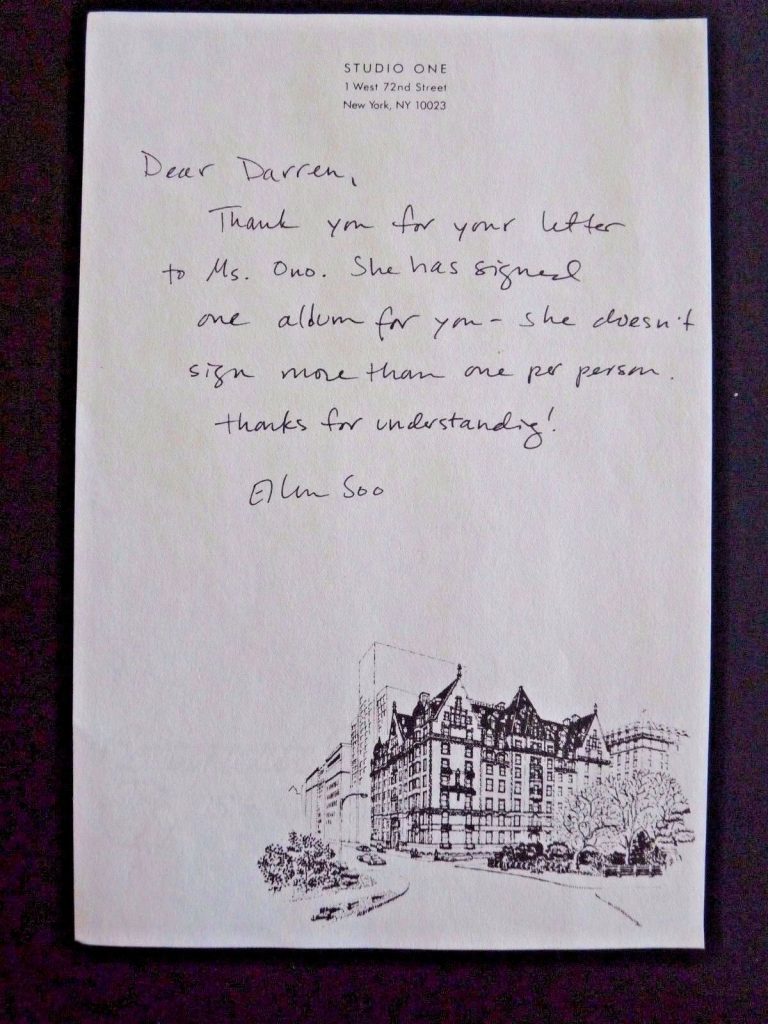 STUDIO ONE
1 West 72nd Street
New York, NY 10023
Dear Darren,
Thank you for your letter
to Ms. Ono. She has signed
one album for you - she doesn't
sign more than one per person.
thanks for understandig!
Soo